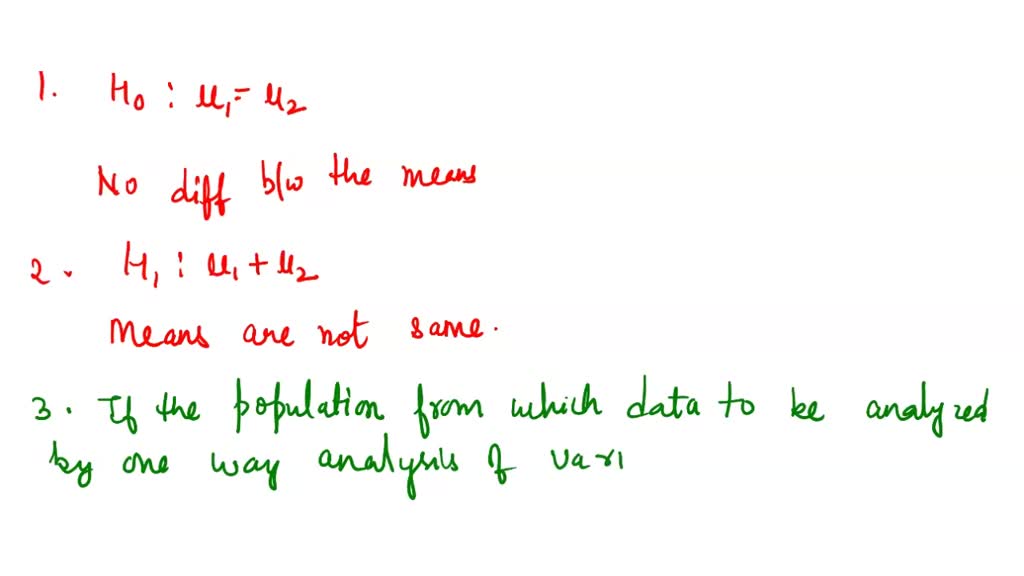 1. H₀ : μ₁ = μ₂
No diff b/w the means
2. H₁ : μ₁ + μ₂
Means are not same.
3. If the population from which data to be analyzed
by one way analysis of vari